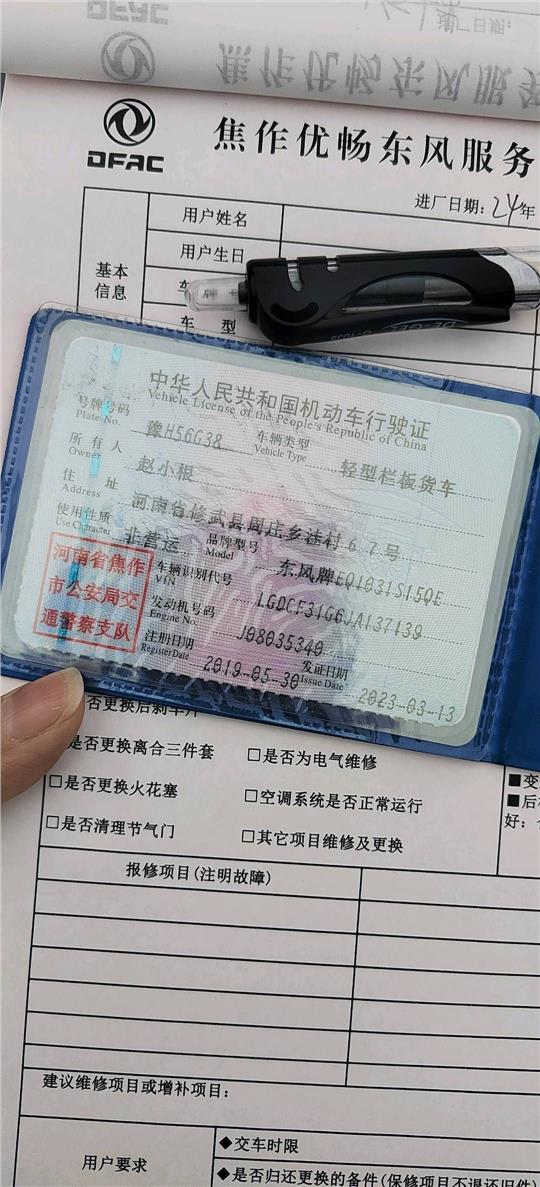 DFAC
焦作优畅东风服务
进厂日期：24年
基本
信息
用户姓名
用户生日
车
车 型
中华人民共和国机动车行驶证
Vehicle License of the People's Republic of China
号牌号码 豫H56G38 车辆类型 轻型栏板货车
Plate No. Vehicle Type
所有人 赵小根
Owner
住址 河南省修武县周庄乡洼村67号
Address
使用性质 非营运 品牌型号 东风牌EQ1031S15QE
Use Character Model
河南省焦作
市公安局交
通警察支队
车辆识别代号 LGDCF31G6JA137139
VIN
发动机号码 J08035340
Engine No.
注册日期 2019-05-30 发证日期 2023-03-13
Register Date Issue Date
是否更换后刹车片
是否更换离合三件套 □是否为电气维修
□是否更换火花塞 □空调系统是否正常运行
□是否清理节气门 □其它项目维修及更换
■变
■后
好：
报修项目(注明故障)
建议维修项目或增补项目：
用户要求
◆交车时限
◆是否归还更换的备件(保修项目不退还旧件)